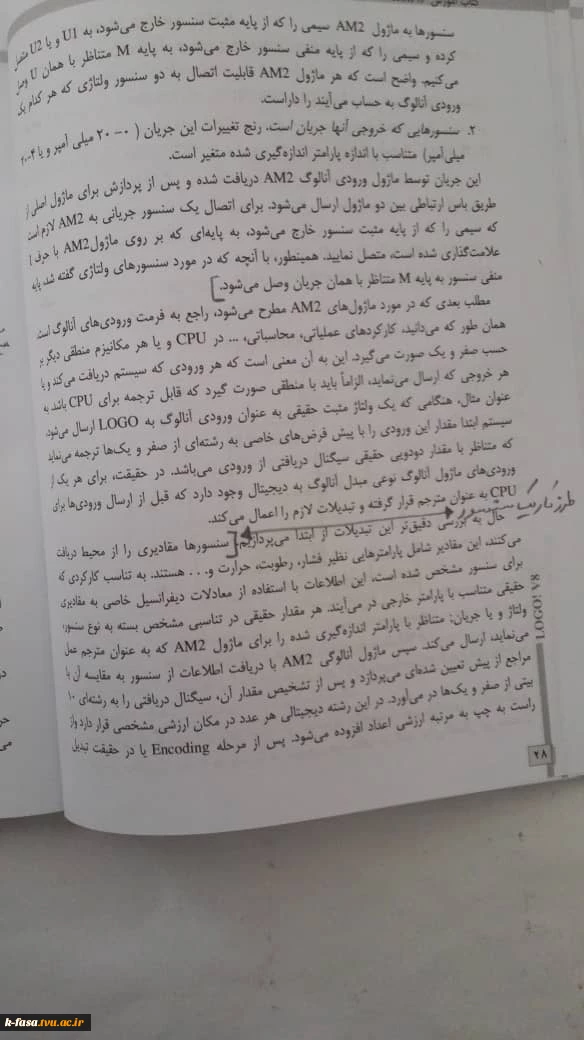 کتاب آموزش
سنسورها به ماژول AM2 سیمی را که از پایه مثبت سنسور خارج می‌شود، به U1 و یا U2 متصل
کرده و سیمی را که از پایه منفی سنسور خارج می‌شود، به پایه M متناظر با همان U وصل
می‌کنیم. واضح است که هر ماژول AM2 قابلیت اتصال به دو سنسور ولتاژی که هر کدام یک
ورودی آنالوگ به حساب می‌آیند را داراست.
۲. سنسورهایی که خروجی آنها جریان است، رنج تغییرات این جریان ( ۰-۲۰ میلی آمپر و یا ۴-۲۰
میلی‌آمپر) متناسب با اندازه پارامتر اندازه‌گیری شده متغیر است.
این جریان توسط ماژول ورودی آنالوگ AM2 دریافت شده و پس از پردازش برای ماژول اصلی از
طریق باس ارتباطی بین دو ماژول ارسال می‌شود. برای اتصال یک سنسور جریانی به AM2 لازم است
که سیمی را که از پایه مثبت سنسور خارج می‌شود، به پایه‌ای که بر روی ماژول AM2 با حرف I
علامت‌گذاری شده است، متصل نمایید. همینطور، با آنچه که در مورد سنسورهای ولتاژی گفته شد، پایه
منفی سنسور به پایه M متناظر با همان جریان وصل می‌شود.]
مطلب بعدی که در مورد ماژول‌های AM2 مطرح می‌شود، راجع به فرمت ورودی‌های آنالوگ است.
همان طور که می‌دانید، کارکردهای عملیاتی، محاسباتی، ... در CPU و یا هر مکانیزم منطقی دیگر بر
حسب صفر و یک صورت می‌گیرد. این به آن معنی است که هر ورودی که سیستم دریافت می‌کند و یا
هر خروجی که ارسال می‌نماید، الزاماً باید با منطقی صورت گیرد که قابل ترجمه برای CPU باشد. به
عنوان مثال، هنگامی که یک ولتاژ مثبت حقیقی به عنوان ورودی آنالوگ به LOGO ارسال می‌شود،
سیستم ابتدا مقدار این ورودی را با پیش فرض‌های خاصی به رشته‌ای از صفر و یک‌ها ترجمه می‌نماید
که متناظر با مقدار دودویی حقیقی سیگنال دریافتی از ورودی می‌باشد. در حقیقت، برای هر یک از
ورودی‌های ماژول آنالوگ نوعی مبدل آنالوگ به دیجیتال وجود دارد که قبل از ارسال ورودی‌ها برای
CPU به عنوان مترجم قرار گرفته و تبدیلات لازم را اعمال می‌کند.
طرز کار یک سنسور
حال به بررسی دقیق‌تر این تبدیلات از ابتدا می‌پردازیم. [سنسورها مقادیری را از محیط دریافت
می‌کنند، این مقادیر شامل پارامترهایی نظیر فشار، رطوبت، حرارت و. . . هستند. به تناسب کارکردی که
برای سنسور مشخص شده است، این اطلاعات با استفاده از معادلات دیفرانسیل خاصی به مقادیری
حقیقی متناسب با پارامتر خارجی در می‌آیند. هر مقدار حقیقی در تناسبی مشخص بسته به نوع سنسور،
ولتاژ و یا جریان: متناظر با پارامتر اندازه‌گیری شده را برای ماژول AM2 که به عنوان مترجم عمل
می‌نماید، ارسال می‌کند. سپس ماژول آنالوگی AM2 با دریافت اطلاعات از سنسور به مقایسه آن با
مراجع از پیش تعیین شده‌ای می‌پردازد و پس از تشخیص مقدار آن، سیگنال دریافتی را به رشته‌ای ۱۰
بیتی از صفر و یک‌ها در می‌آورد. در این رشته دیجیتالی هر عدد در مکان ارزشی مشخصی قرار دارد و از
راست به چپ به مرتبه ارزشی اعداد افزوده می‌شود. پس از مرحله Encoding یا در حقیقت تبدیل
LOGO! V8
۲۸
k-fasa.tvu.ac.ir